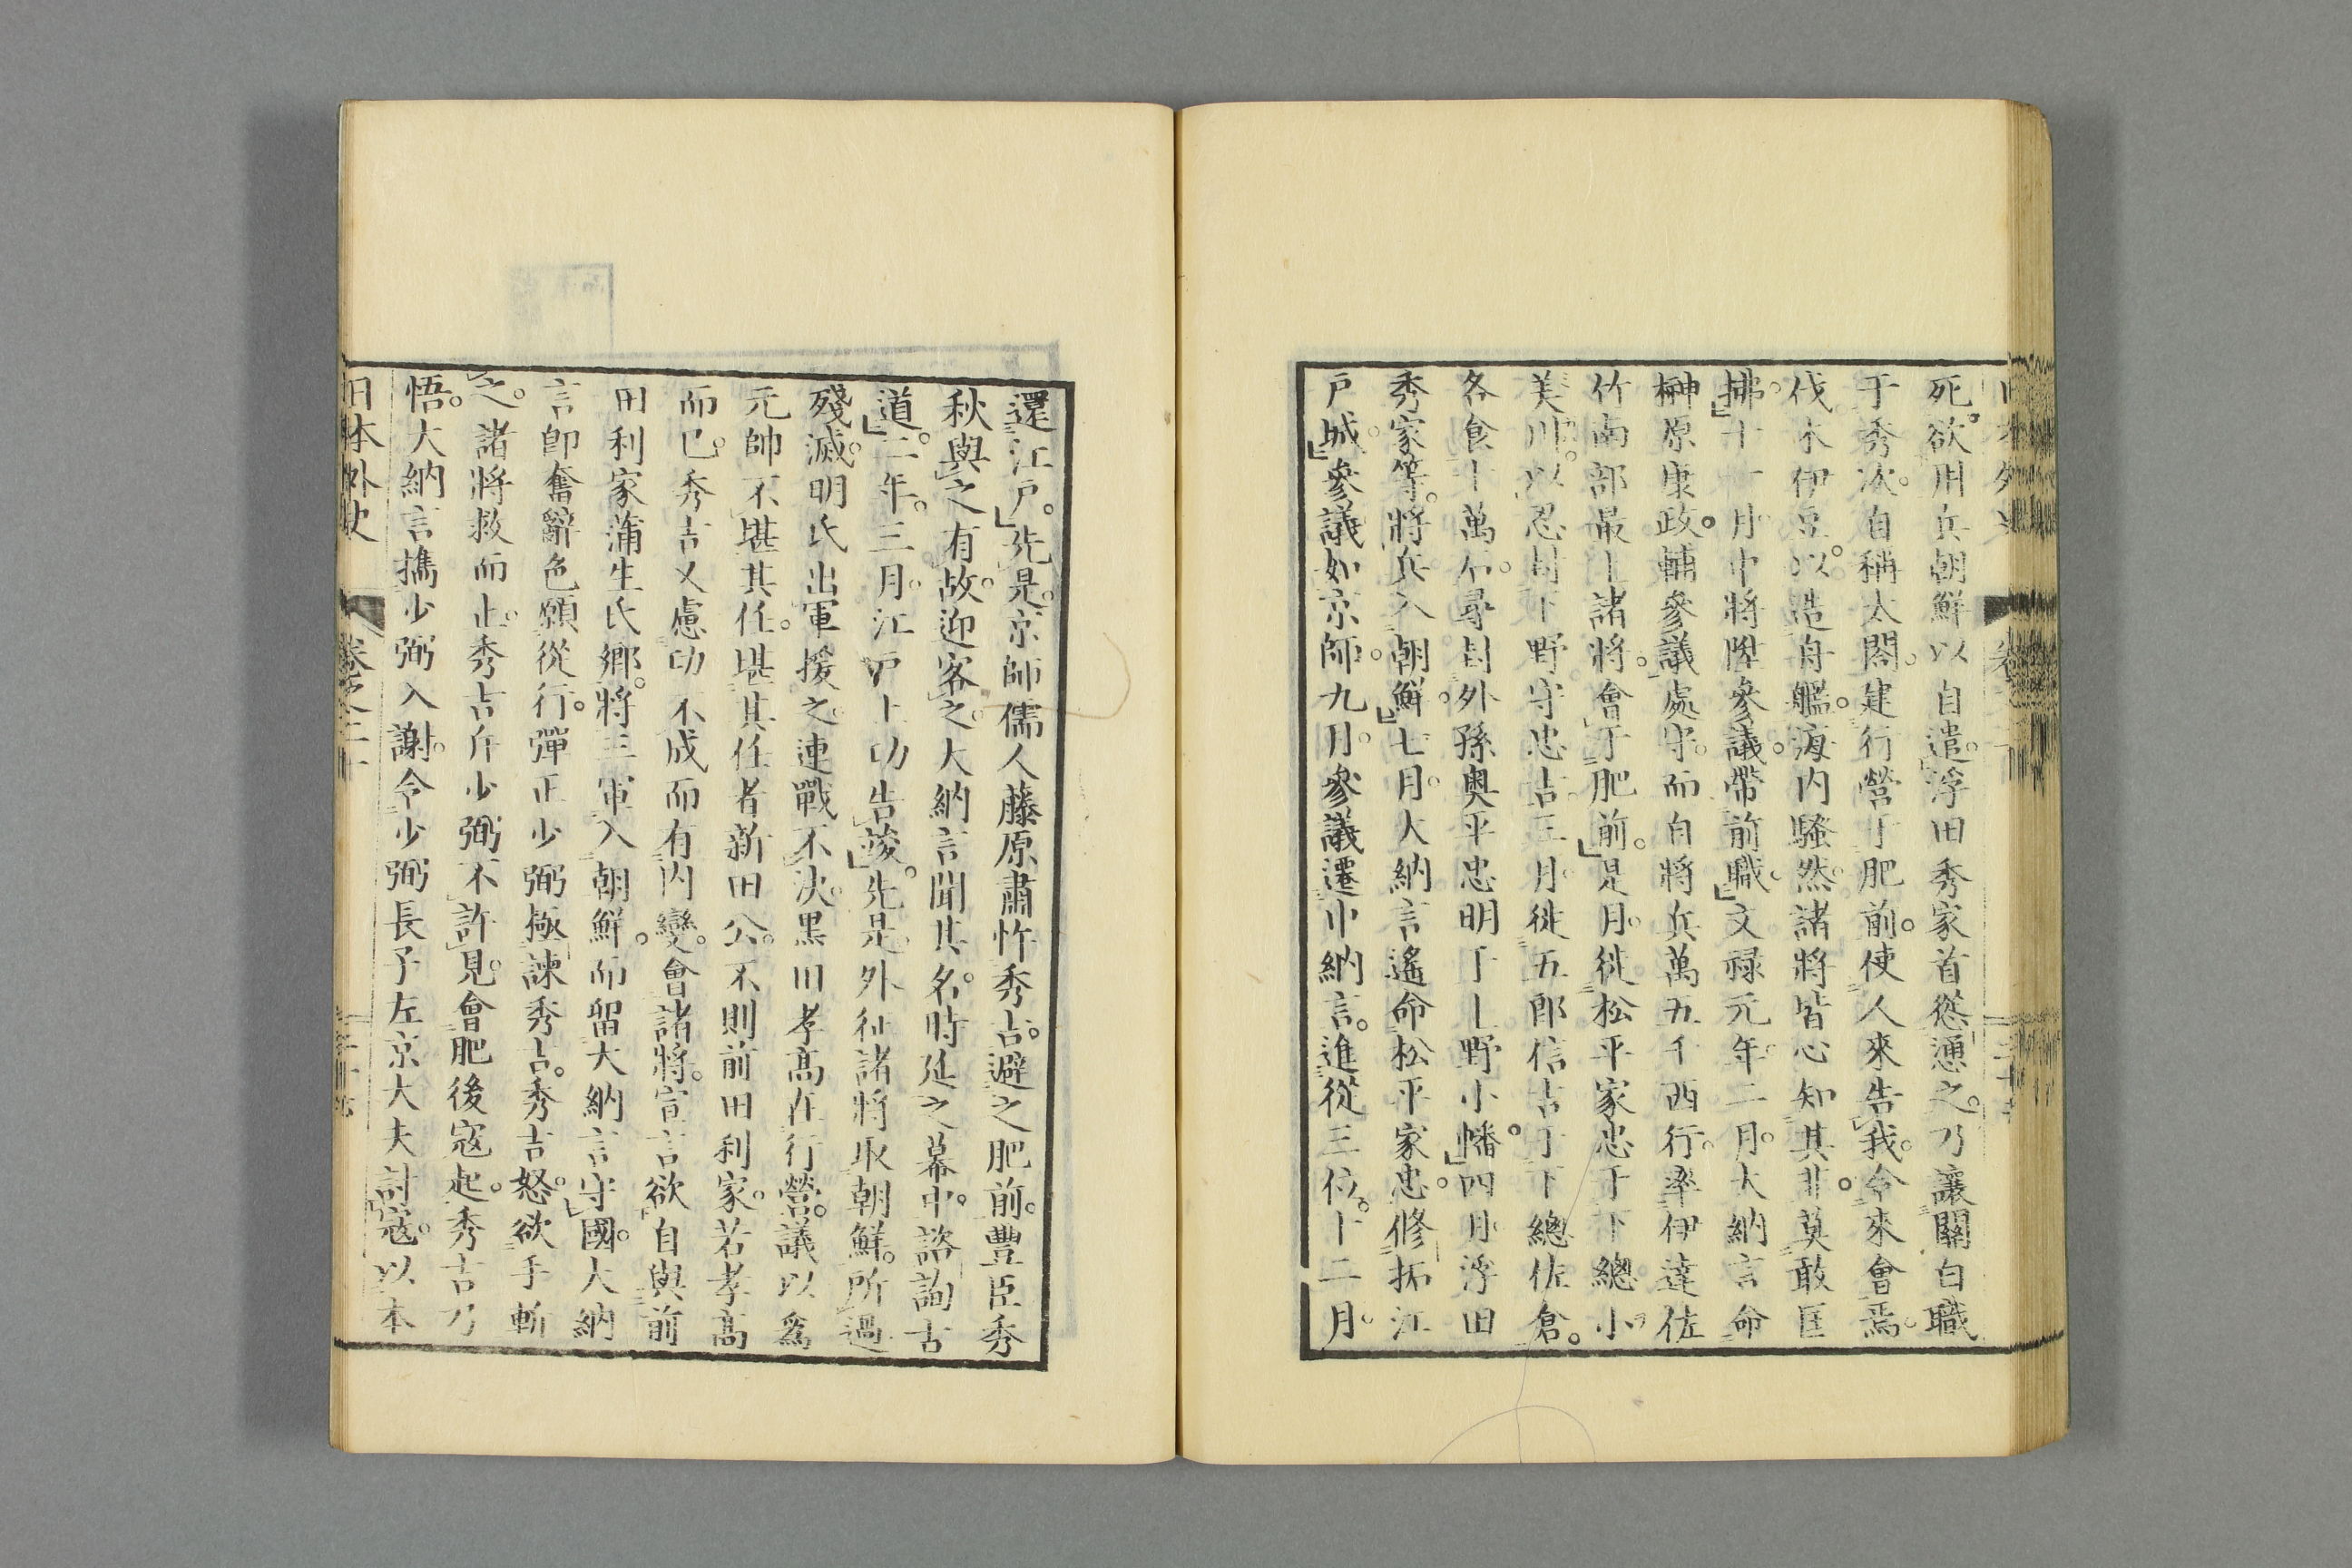 死。欲用兵朝鮮以自遣。浮田秀家首慫慂之。乃讓關白職
于秀次。自稱太閤。建行營于肥前。使人來告我。令來會焉。
伐木伊豆。以造舟艦。海内騷然。諸將皆心知其非。莫敢匡
拂。十一月中將陞參議。帶前職。文禄元年。二月。大納言命
榊原康政。輔參議處守。而自將兵萬五千西行。率伊達佐
竹南部最上諸將。會于肥前。是月。徙松平家忠于下總小
美川。以忍封下野守忠吉。三月。徙五郎信吉于下總佐倉。
各食十萬石。尋封外孫奥平忠明于上野小幡。四月浮田
秀家等。將兵入朝鮮。七月。大納言遙命松平家忠。修拓江
戸城。參議如京師。九月。參議遷中納言。進從三位。十二月。
還江戸。先是。京師儒人藤原肅忤秀吉。避之肥前。豐臣秀
秋與之有故。迎客之。大納言聞其名。時延之幕中。諮詢古
道。二年。三月。江戸上功告竣。先是。外征諸將取朝鮮。所過
殘滅。明氏出軍援之。連戰不決。黒田孝高在行營。議以爲
元帥不堪其任。堪其任者新田公。不則前田利家。若孝高
而已。秀吉又慮功不成而有内變。會諸將。宣言欲自與前
田利家蒲生氏郷。將三軍入朝鮮。而留大納言守國。大納
言卽奮辭色願從行。彈正少弼極諫秀吉。秀吉怒。欲手斬
之。諸將救而止。秀吉斥少弼不許見。會肥後寇起。秀吉乃
悟。大納言攜少弼入謝。令少弼長子左京大夫討寇。以本
日本外史 卷之二十